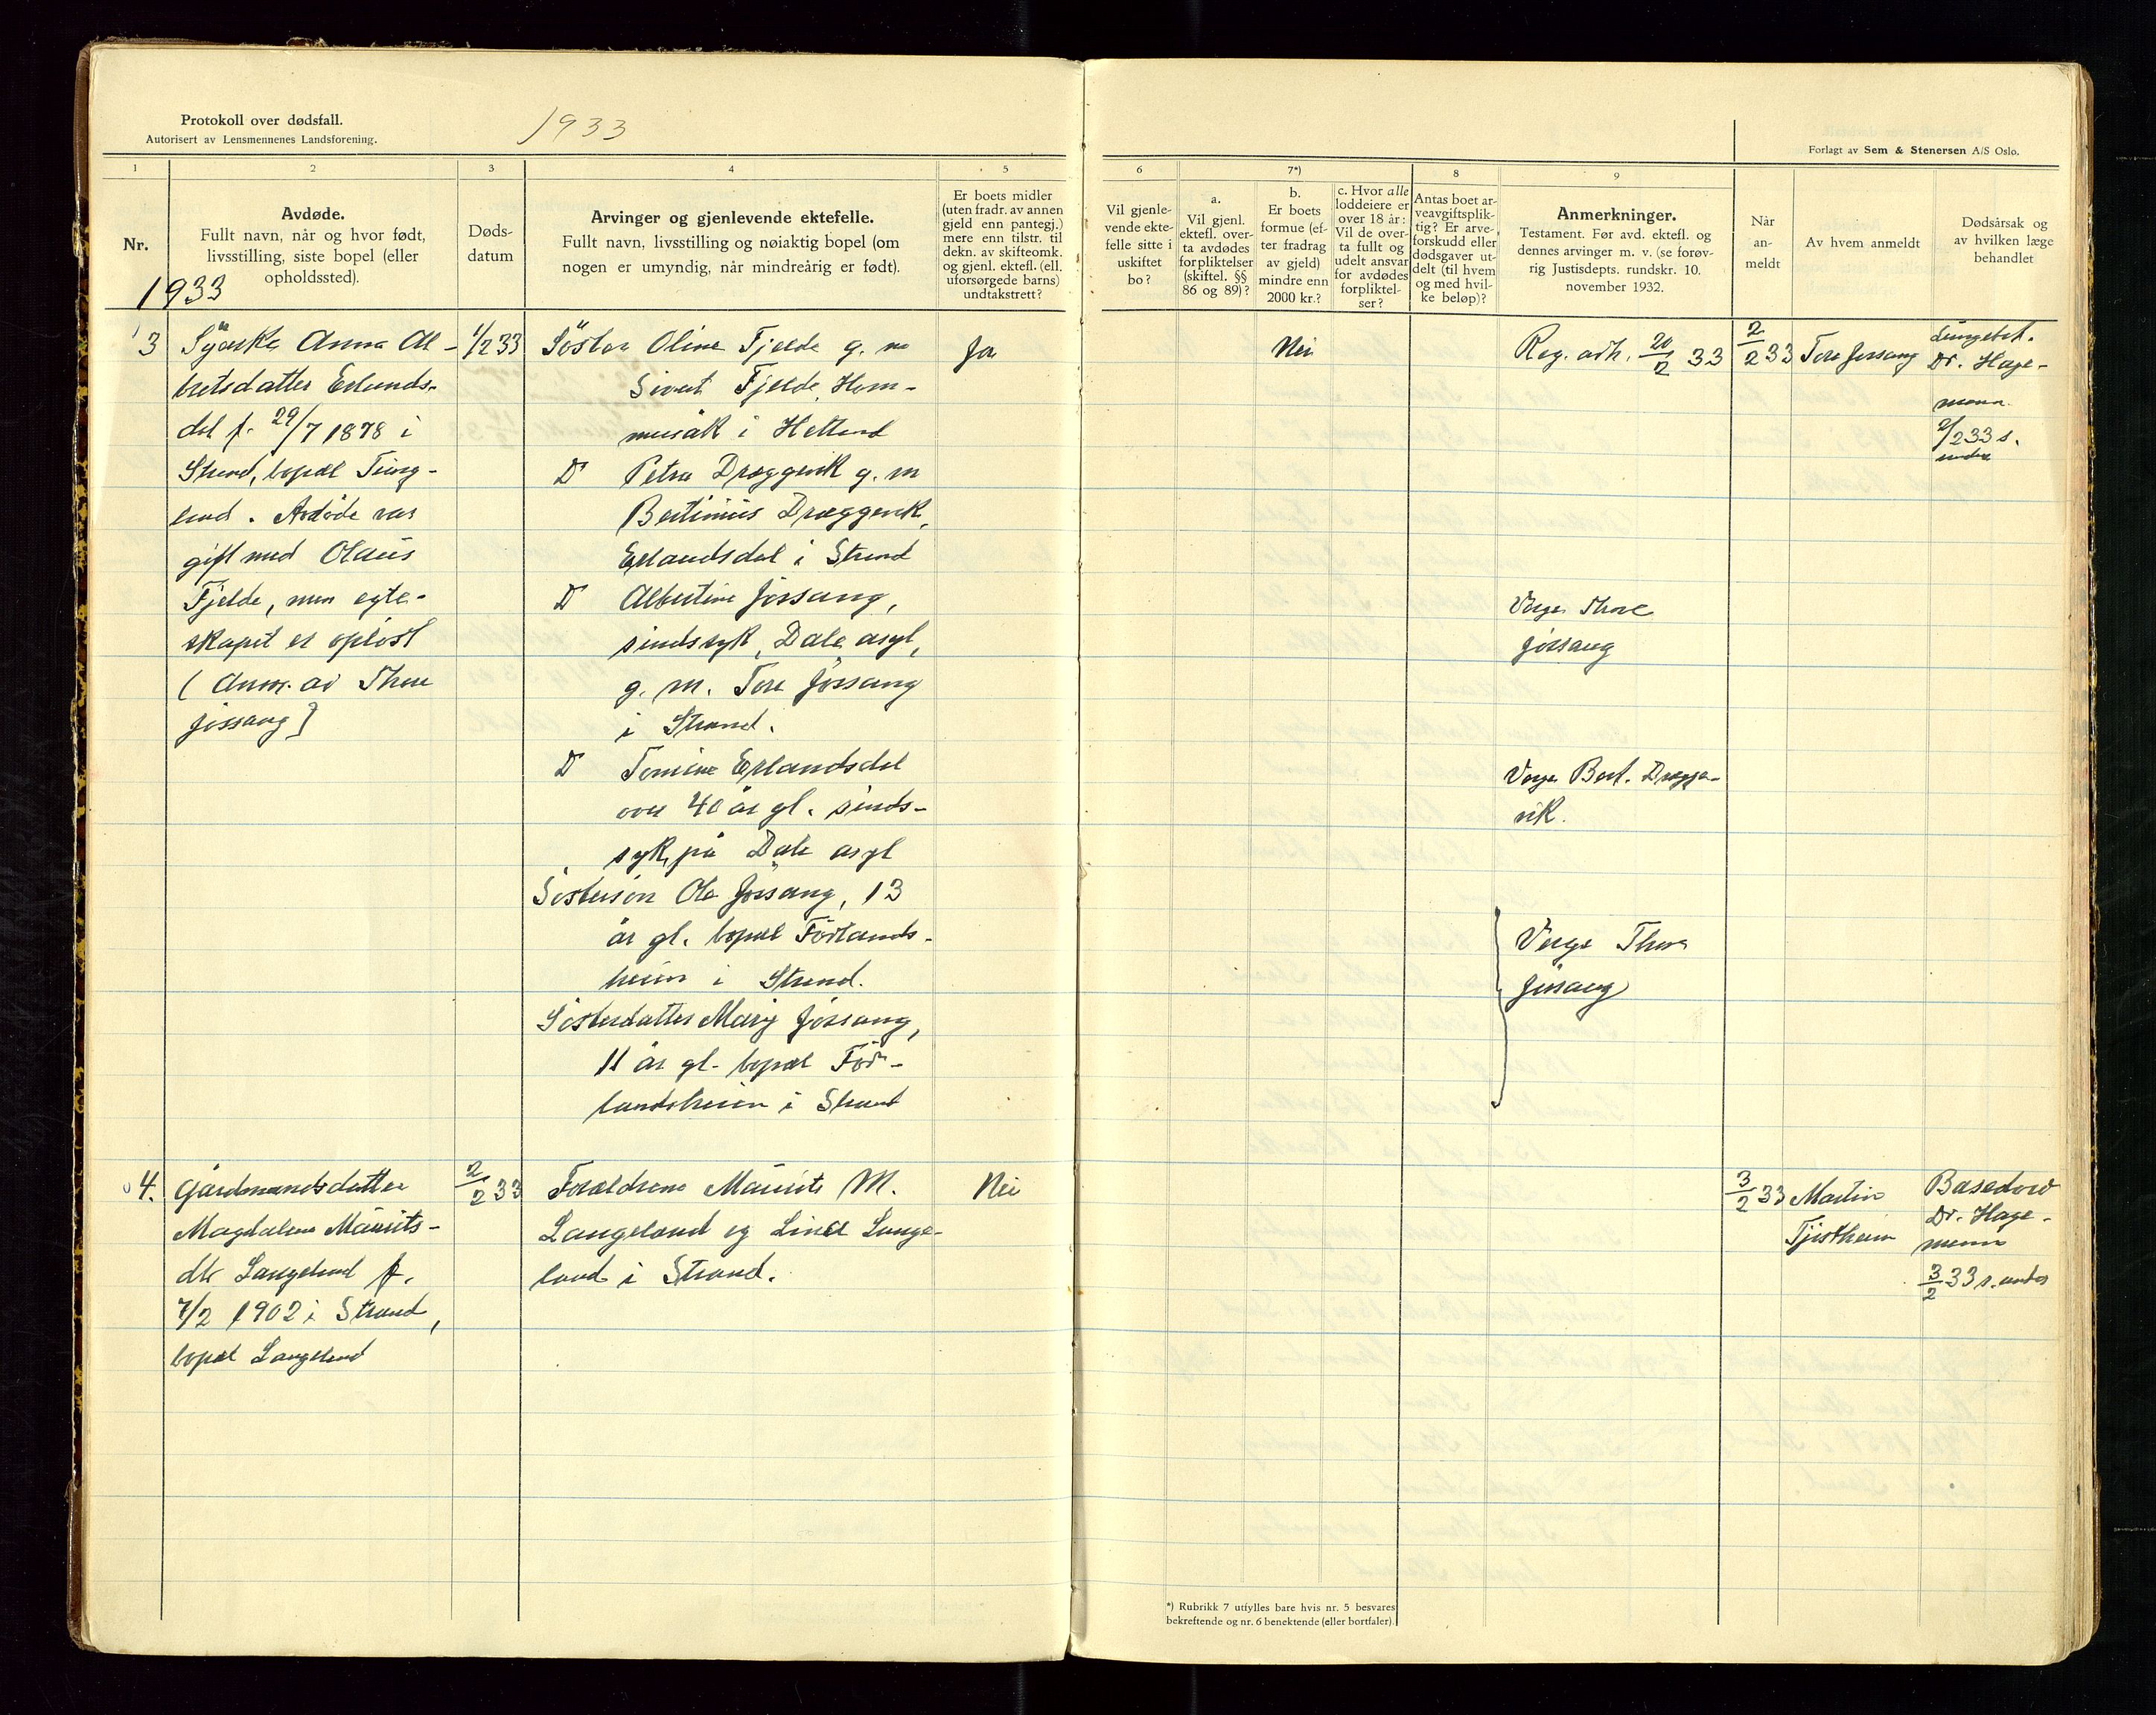 Protokoll over dødsfall.
Autorisert av Lensmennenes Landsforening.
1933
Forlagt av Sem & Stenersen A/S Oslo.
1
2
3
4
5
6
7*)
8
9
Nr.
1933
Avdøde.
Fullt navn, når og hvor født,
livsstilling, siste bopel (eller
opholdssted).
Døds-
datum
Arvinger og gjenlevende ektefelle.
Fullt navn, livsstilling og nøiaktig bopel (om
nogen er umyndig, når mindreårig er født).
Er boets midler
(uten fradr. av annen
gjeld enn pantegj.)
mere enn tilstr. til
dekn. av skifteomk.
og gjenl. ektefl. (ell.
uforsørgede barns)
undtakstrett?
Vil gjenle-
vende ekte-
felle sitte i
uskiftet
bo?
a.
Vil gjenl.
ektefl. over-
ta avdødes
forpliktelser
(skiftel. §§
86 og 89)?
b.
Er boets
formue (ef-
ter fradrag
av gjeld)
mindre enn
2000 kr.?
c. Hvor alle
loddeiere er
over 18 år:
Vil de over-
ta fullt og
udelt ansvar
for avdødes
forpliktel-
ser?
Antas boet ar-
veavgiftsplik-
tig? Er arve-
forskudd eller
dødsgaver ut-
delt (til hvem
og med hvil-
ke beløp)?
Anmerkninger.
Testament. Før avd. ektefl. og
dennes arvinger m. v. (se forøv-
rig Justisdepts. rundskr. 10.
november 1932.
Når
an-
meldt
Av hvem anmeldt
Dødsårsak og
av hvilken læge
behandlet
3
Anna Al-
bretsdatter Erlands-
dal f. 29/7 1878 i
Strand, bopæl Tung-
land. Avdøde var
gift med Olaus
Fjelde, men egte-
skapet er opløst
(Anm. av Thore
Jøssang)
1/2 33
Søster Oline Fjelde g. m
Sivert Fjelde, Hom-
mersåk i Hetland
D Petra Dræggevik g. m
Bertinius Dræggevik,
Erlandsdal i Strand
D Albertine Jøssang,
sindssyk, Dale asyl,
g. m. Tore Jøssang
i Strand.
D Tomine Erlandsdal
over 40 år gl. sinds-
syk, på Dale asyl
Søstersøn Ole Jøssang, 13
år gl. bopæl Førlands-
heien i Strand.
Søsterdatter Mary Jøssang,
11 år gl. bopæl Før-
landsheien i Strand
Ja
Nei
Reg. avh. 20/2 33
Verge Thore
Jøssang
Verge Bert. Drægge-
vik.
Verge Thore
Jøssang
2/2 33
Tore Jøssang
Lungebet.
Dr. Hage-
mann
2/2 33 s.
under
4.
Gårdmandsdatter
Magdalene Maurits-
dtr Langeland f.
7/2 1902 i Strand,
bopæl Langeland
2/2 33
Forældrene Maurits M.
Langeland og Lina Lange-
land i Strand.
Nei
3/2 33
Martin
Tjøstheim
Basedow
Dr. Hage-
mann
3/2 33 s. under
*) Rubrikk 7 utfylles bare hvis nr. 5 besvares
bekreftende og nr. 6 benektende (eller bortfaler).